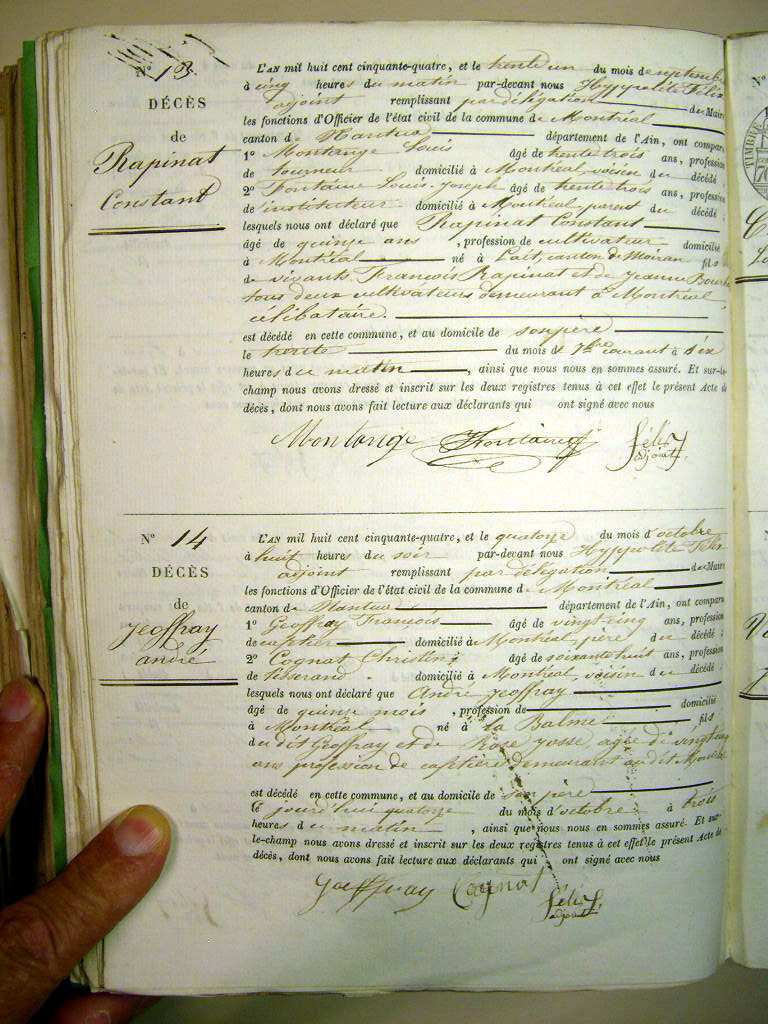 N° 13.
DÉCÈS
de
Rapinat
Constant
L'AN mil huit cent cinquante-quatre, et le trente un du mois de septembre
à cinq heures du matin par-devant nous Hyppolite Félix
adjoint remplissant par délégation de Maire
les fonctions d'Officier de l'état civil de la commune de Montréal
canton de Nantua département de l'Ain, ont comparu
1° Montange Louis âgé de trente trois ans, profession
de tourneur domicilié à Montréal voisin du décédé ;
2° Fontaine Louis-Joseph âgé de trente trois ans, profession
de instituteur domicilié à Montréal parent du décédé ;
lesquels nous ont déclaré que Rapinat Constant
âgé de quinze ans , profession de cultivateur domicilié
à Montréal né à Lait, canton de Moiran fils
de vivants François Rapinat et de Jeanne
tous deux cultivateurs demeurant à Montréal,
célibataire.
est décédé en cette commune, et au domicile de son père
le trente du mois de 7bre courant à six
heures du matin , ainsi que nous nous en sommes assuré. Et sur-le-
champ nous avons dressé et inscrit sur les deux registres tenus à cet effet le présent Acte de
décès, dont nous avons fait lecture aux déclarants qui ont signé avec nous
Montange Fontaine Félix
adjoint
N° 14
DÉCÈS
de
Jeoffray
andré
L'AN mil huit cent cinquante-quatre, et le quatorze du mois d'octobre
à huit heures du soir par-devant nous Hyppolite Félix
adjoint remplissant par délégation de Maire
les fonctions d'Officier de l'état civil de la commune de Montréal
canton de Nantua département de l'Ain, ont comparu
1° Geoffray François âgé de vingt-cinq ans, profession
de domicilié à Montréal, père du décédé ;
2° Cognat Christin âgé de soixante huit ans, profession
de tisserand domicilié à Montréal, voisin du décédé ;
lesquels nous ont déclaré que André Jeoffray
âgé de quinze mois , profession de domicilié
à Montréal né à la Balme fils
du dit Geoffray et de Rose Josse agée de vingt cinq
ans profession de demeurant au dit Montréal
est décédé en cette commune, et au domicile de son père
le jourd'hui quatorze du mois d'octobre à trois
heures du matin , ainsi que nous nous en sommes assuré. Et sur-
le-champ nous avons dressé et inscrit sur les deux registres tenus à cet effet le présent Acte de
décès, dont nous avons fait lecture aux déclarants qui ont signé avec nous
Joeffray Cognat Félix
adjoint